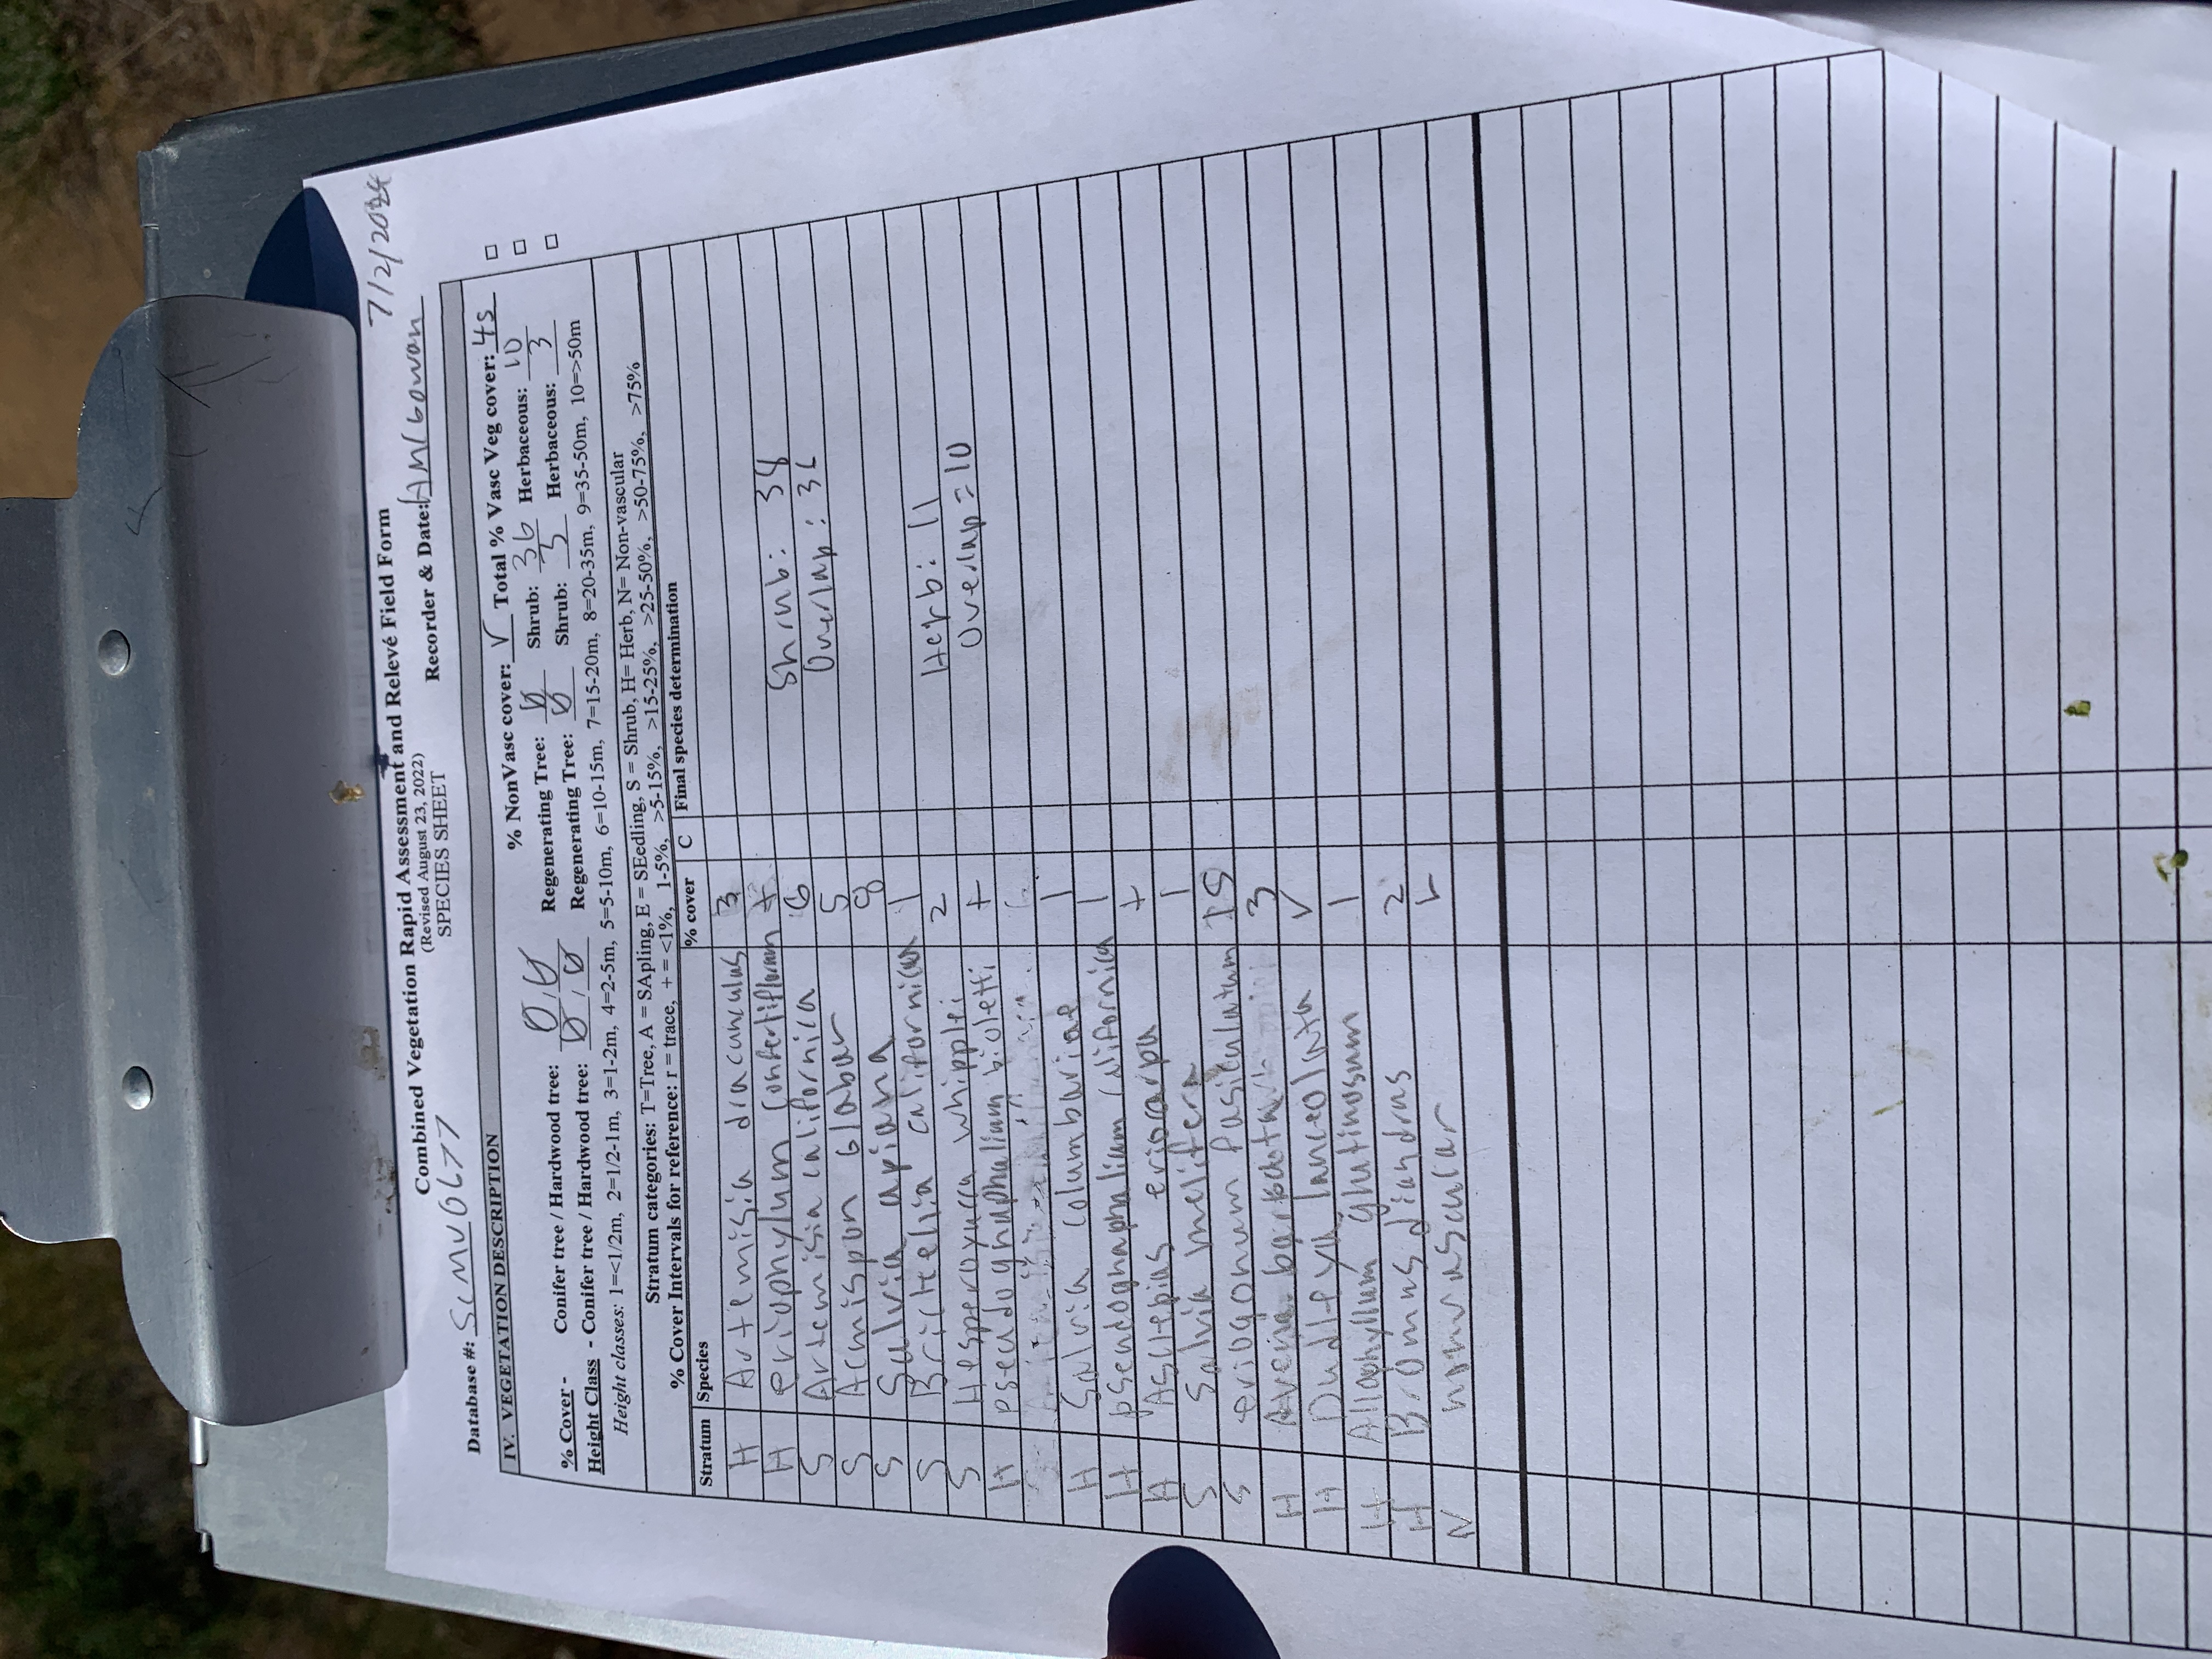 Combined Vegetation Rapid Assessment and Relevé Field Form
(Revised August 23, 2022)
SPECIES SHEET
7/2/2024
Database #: SCMV0677 Recorder & Date: AM/Gowan
IV. VEGETATION DESCRIPTION
% NonVasc cover: r Total % Vasc Veg cover: 45
% Cover - Conifer tree / Hardwood tree: 0/0 Regenerating Tree: 0 Shrub: 36 Herbaceous: 10
Height Class - Conifer tree / Hardwood tree: 0/0 Regenerating Tree: 0 Shrub: 3 Herbaceous: 3
Height classes: 1=<1/2m, 2=1/2-1m, 3=1-2m, 4=2-5m, 5=5-10m, 6=10-15m, 7=15-20m, 8=20-35m, 9=35-50m, 10=>50m
Stratum categories: T=Tree, A = SApling, E = SEedling, S = Shrub, H= Herb, N= Non-vascular
% Cover Intervals for reference: r = trace, + = <1%, 1-5%, >5-15%, >15-25%, >25-50%, >50-75%, >75%
Stratum Species % cover C Final species determination
H Artemisia dracunculus 3
H eriophyllum confertiflorum +
S Artemisia californica 6 Shrub: 38
S Acmispon Glabar 5 Overlap: 36
S Salvia apiana 8
S Brictelia californica 1
S Hesperoyucca whipplei 2 Herb: 11
H pseudognaphalium bioletti + Overlap = 10
H Salvia columbariae 1
H pseudognaphalium californica 1
H Asclepias eriocarpa +
S Salvia melifera 1
S eriogonum fasiculatum 15
H Avena barbata 3
H Dudleya lanceolata r
H Allophyllum glutinosum 1
H Bromus diandrus 2
N nonvascular r